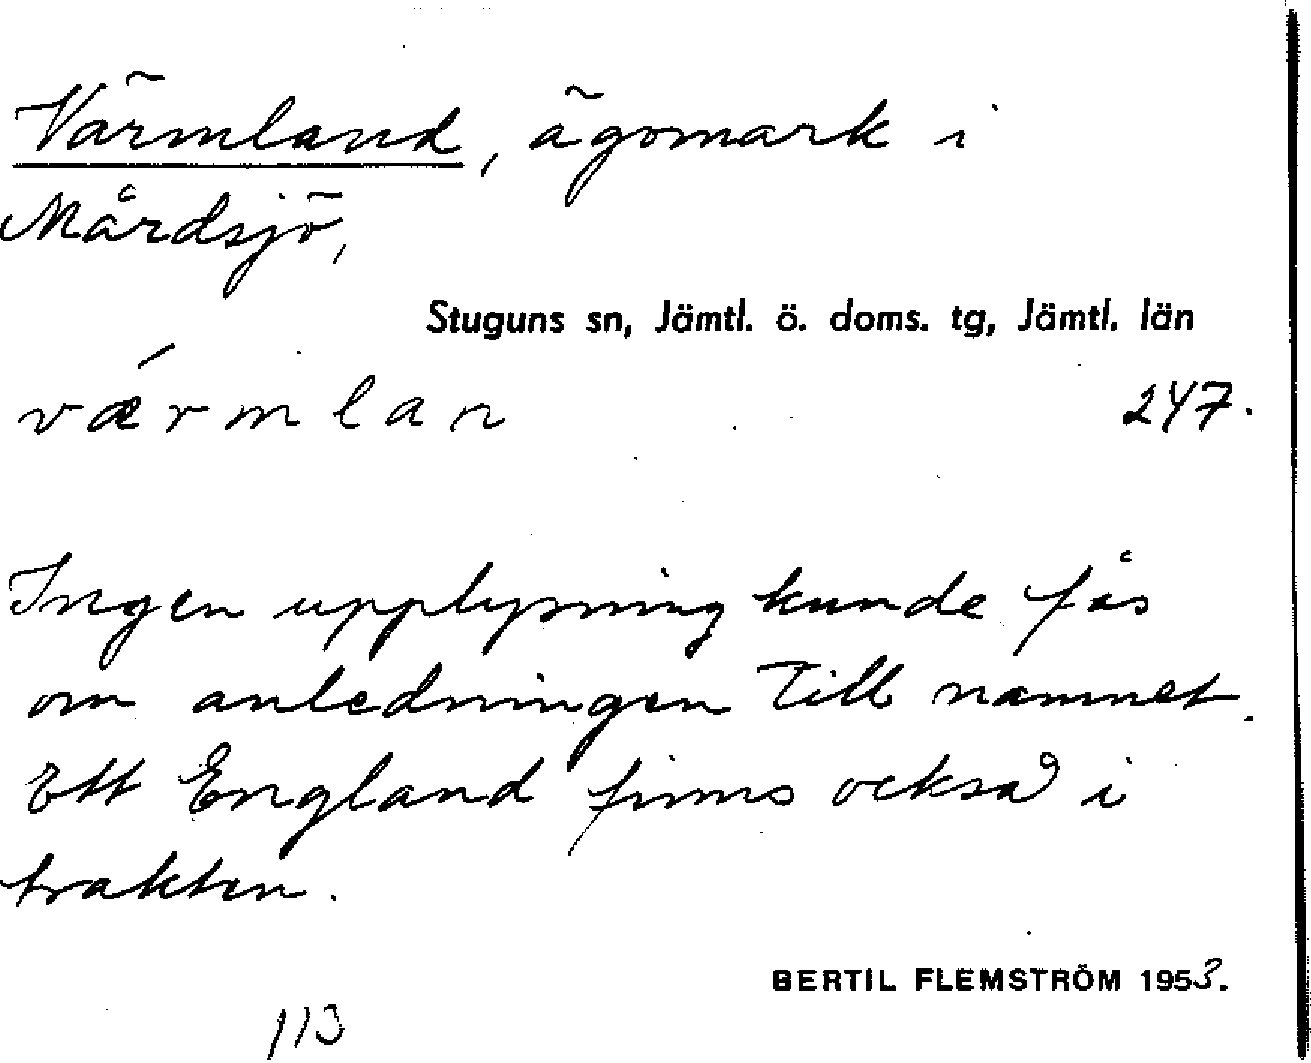 Värmland, ägomark i
Mårdsjö,
Stuguns sn, Jämtl. ö. doms. tg, Jämtl. län
vǽrmlan 247.
Ingen upplysning kunde fås
om anledningen till namnet.
Ett England finns också i
trakten.
BERTIL FLEMSTRÖM 1953.
113